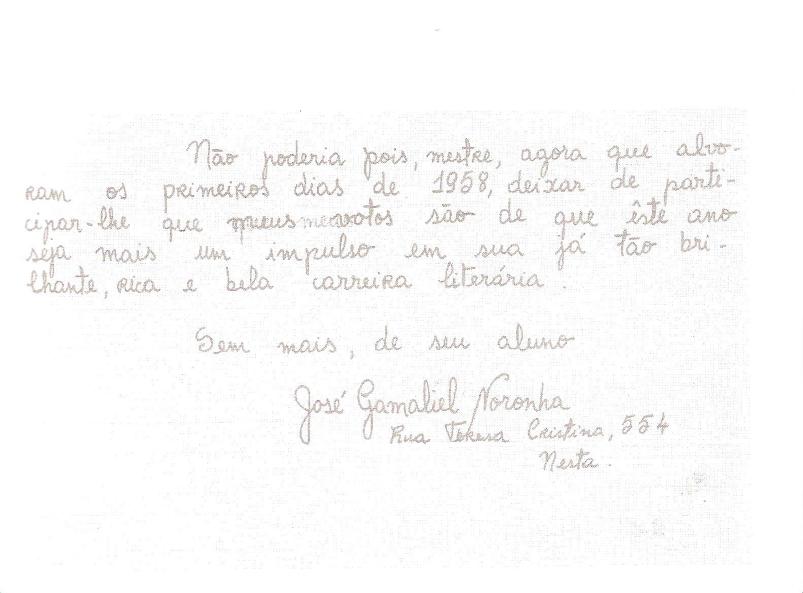 Não poderia pois, mestre, agora que alvo-
ram os primeiros dias de 1958, deixar de parti-
cipar-lhe que meus votos são de que êste ano
seja mais um impulso em sua já tão bri-
lhante, rica e bela carreira literária.
Sem mais, de seu aluno
José Gamaliel Noronha
Rua Teresa Cristina, 554
Nesta.